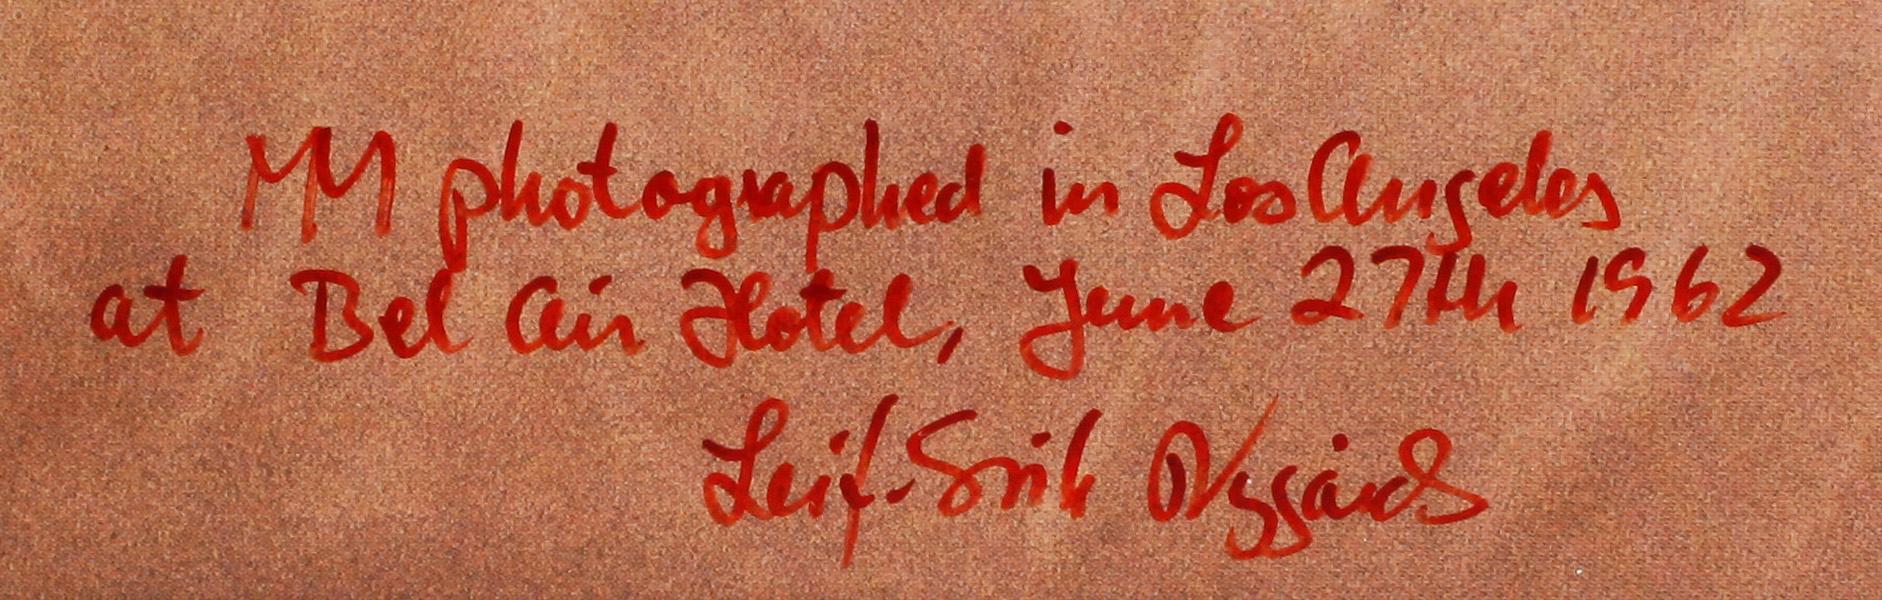 MM photographed in Los Angeles
at Bel Air Hotel, June 27th 1962
Leif-Erik Nygårds